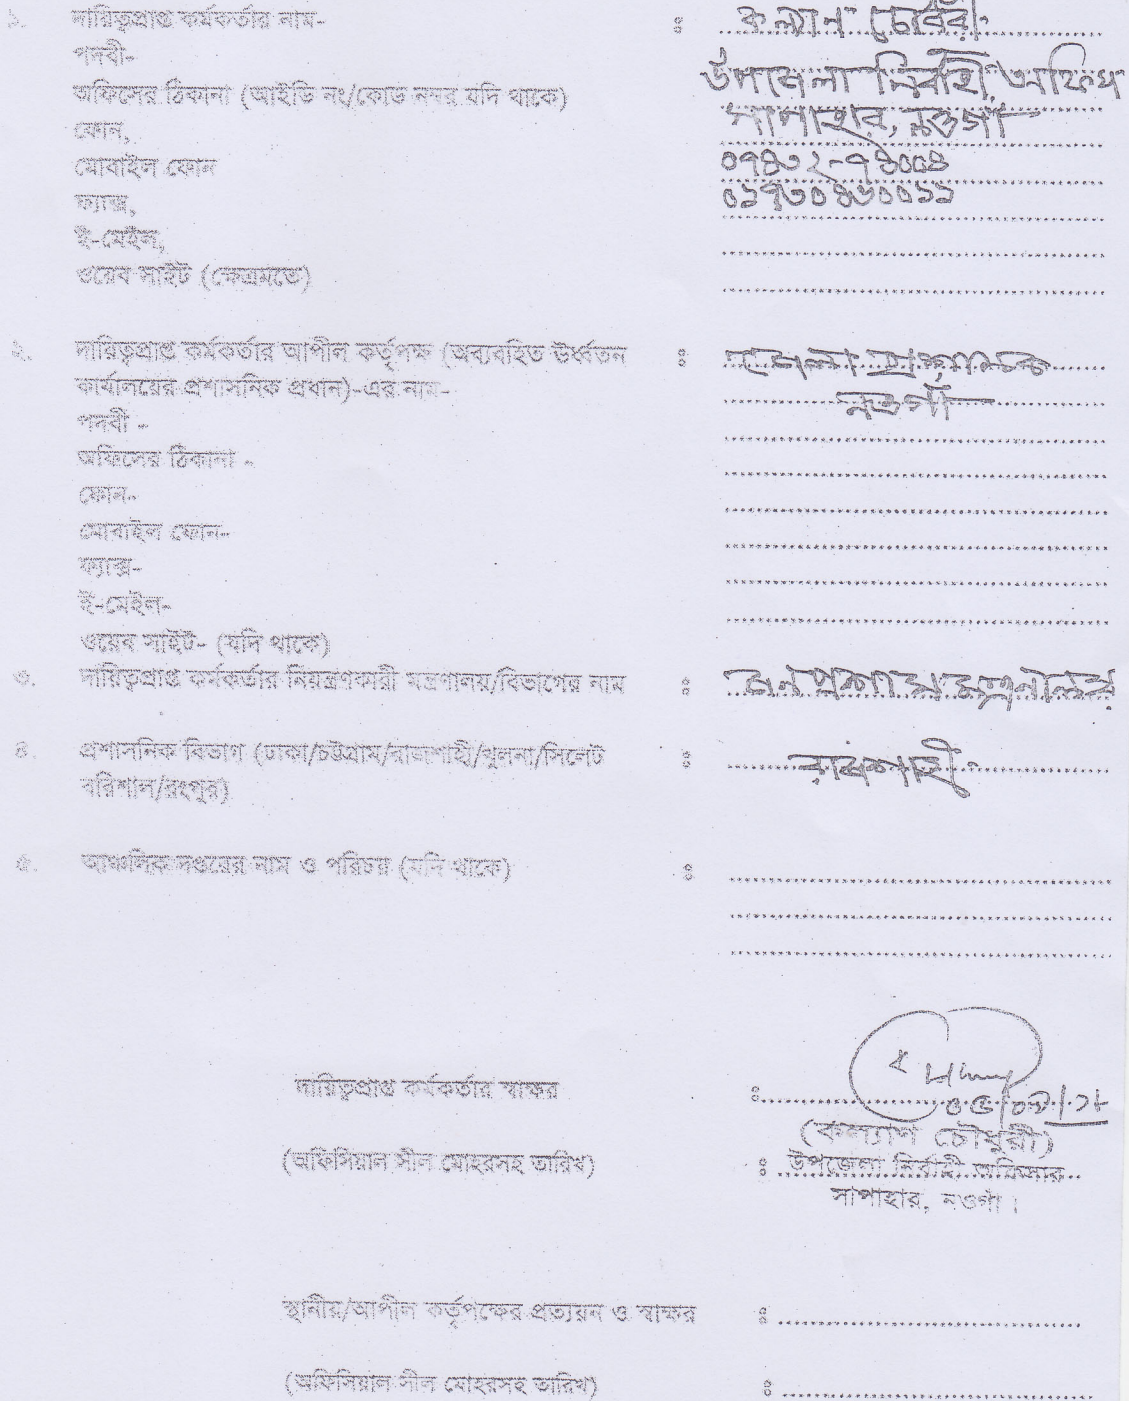 ১. দায়িত্বপ্রাপ্ত কর্মকর্তার নাম- : কল্যাণ চৌধুরী
পদবী- উপজেলা নির্বাহী অফিসার
অফিসের ঠিকানা (আইডি নং/কোড নম্বর যদি থাকে) সাপাহার, নওগাঁ
ফোন, ০৭৪৩২-৭৪০০৪
মোবাইল ফোন ০১৭৩০৪৬০০১১
ফ্যাক্স,
ই-মেইল,
ওয়েব সাইট (ক্ষেত্রমতে)
২. দায়িত্বপ্রাপ্ত কর্মকর্তার আপীল কর্তৃপক্ষ (অব্যবহিত উর্ধ্বতন : জেলা প্রশাসক
কার্যালয়ের প্রশাসনিক প্রধান)-এর নাম- নওগাঁ
পদবী -
অফিসের ঠিকানা -
ফোন-
মোবাইল ফোন-
ফ্যাক্স-
ই-মেইল-
ওয়েব সাইট- (যদি থাকে)
৩. দায়িত্বপ্রাপ্ত কর্মকর্তার নিয়ন্ত্রণকারী মন্ত্রণালয়/বিভাগের নাম : জনপ্রশাসন মন্ত্রনালয়
৪. প্রশাসনিক বিভাগ (ঢাকা/চট্টগ্রাম/রাজশাহী/খুলনা/সিলেট : রাজশাহী
বরিশাল/রংপুর)
৫. আঞ্চলিক দপ্তরের নাম ও পরিচয় (যদি থাকে) :
দায়িত্বপ্রাপ্ত কর্মকর্তার স্বাক্ষর :
(কল্যাণ চৌধুরী)
(অফিসিয়াল সীল মোহরসহ তারিখ) : উপজেলা নির্বাহী অফিসার
সাপাহার, নওগাঁ।
স্থানীয়/আপীল কর্তৃপক্ষের প্রত্যয়ন ও স্বাক্ষর :
(অফিসিয়াল সীল মোহরসহ তারিখ) :